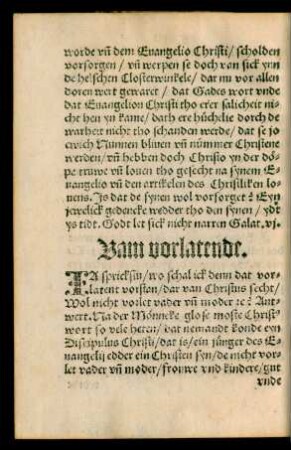 worde vn̄ dem Euangelio Christi/ scholden
vorsorgen/ vn̄ werpen se doch van sick ynn
de helschen Closterwinkele/ dar nu vor allen
doren wert gewaret/ dat Gades wort vnde
dat Euangelion Christi tho erer salicheit ni-
cht hen yn kame/ dath ere hüchelie dorch de
warheit nicht tho schanden werde/ dat se jo
ewich Nunnen bliuen vn̄ nümmer Christene
werden/ vn̄ hebben doch Christo yn der dö-
pe truwe vn̄ louen tho gesecht na synem Eu-
angelio vn̄ den artikelen des Christliken lo-
uens. Is dat de synen wol vorsorget? Eyn
jewelick gedencke wedder tho den synen/ ydt
ys tidt. Godt let sick nicht narren Galat. vj.
Vam vorlatende.
JA sprickstu/ wo schal ick denn dat vor-
latent vorstan/ dar van Christus secht/
Wol nicht vorlet vader vn̄ moder ꝛc? Ant-
wert. Na der Mönneke glose moste Christ9
wort so vele heten/ dat nemandt konde eyn
Discipulus Christi/ dat is/ ein jünger des Eu-
angelij edder ein Christen sen/ de nicht vor-
let vader vn̄ moder/ frouwe vnd kindere/ gut
vnde